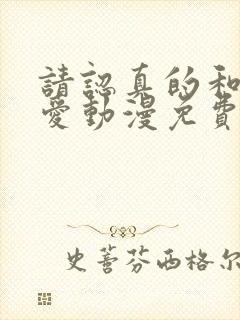 請認真的和
愛動漫免費
史蒂芬西格尔